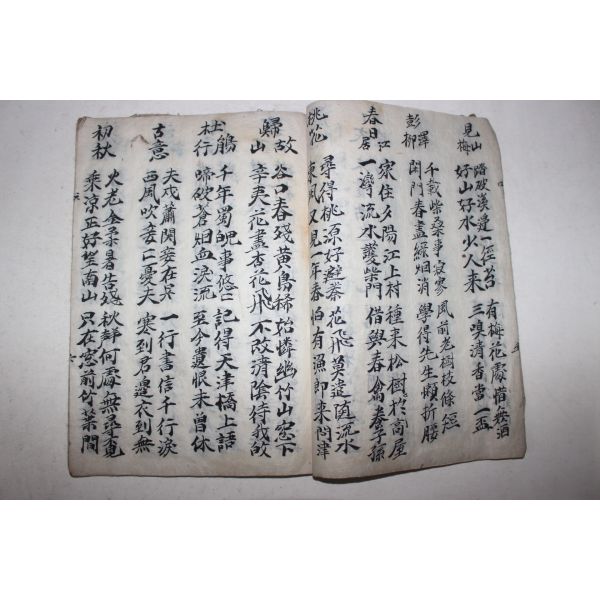 見山梅
踏破溪邊一徑苔 有梅花處惜無酒
好山好水少人来 三嗅清香當一盃
彭澤柳
千載柴桑事寂寥 風前老樹枝條短
閑門春盡綠烟消 學得先生懶折腰
春日江居
家住夕陽江上村 種来松樹於高屋
一灣流水護柴門 借與春禽養子孫
桃花
尋得桃源好避秦 花飛莫遣随流水
東風又見一年春 怕有漁郎来問津
歸故山
谷口春殘黃鳥稀 始憐幽竹山窓下
辛夷花盡杏花飛 不改清陰待我故
杜鵑行
千年蜀魄事悠〻 記得天津橋上語
啼破蒼烟血淚流 至今遺恨未曾休
古意
夫戍蕭関妾在吳 一行書信千行淚
西風吹妾〻憂夫 寒到君邊衣到無
初秋
火老金柔暑 秋聲何處無尋覓
乘涼正好望南山 只在窓前竹葉間